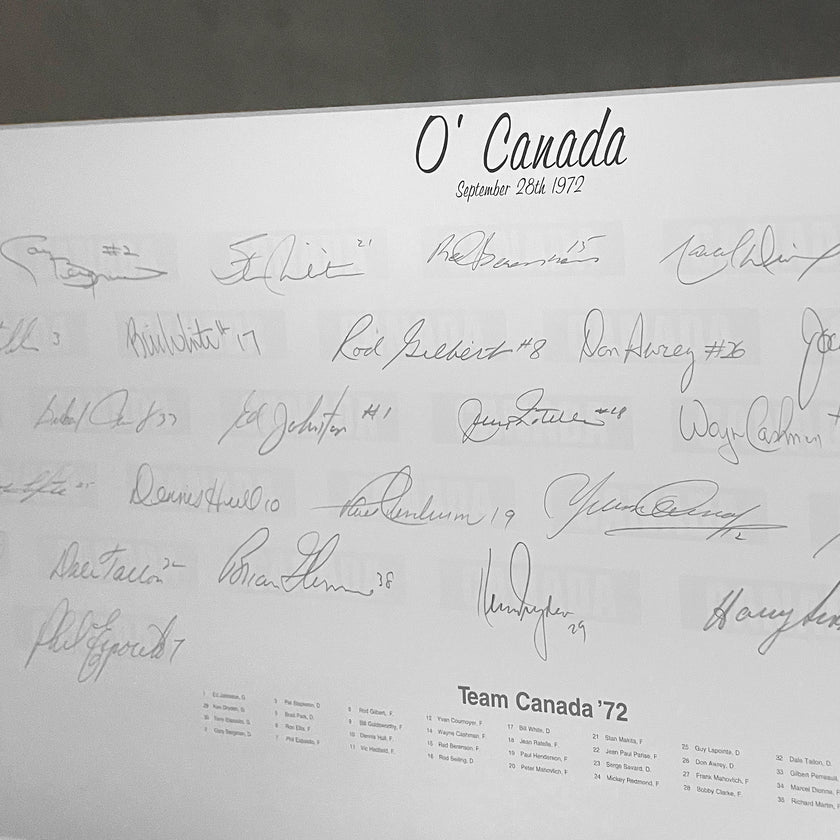 O' Canada
September 28th 1972
#2 21 15
3 Bill White # 17 Rod Gilbert #8 Don Awrey #26
33 Ed Johnston #1 Wayne Cashman
Dennis Hull 10 Paul Henderson 19 12
Dale Tallon 32 Brian Glennie 38 29 Harry
Phil Esposito 7
Team Canada '72
1 Ed Johnston, G.
29 Ken Dryden, G.
35 Tony Esposito, G.
2 Gary Bergman, D.
3 Pat Stapleton, D.
5 Brad Park, D.
6 Ron Ellis, F.
7 Phil Esposito, F.
8 Rod Gilbert, F.
9 Bill Goldsworthy, F.
10 Dennis Hull, F.
11 Vic Hadfield, F.
12 Yvan Cournoyer, F.
14 Wayne Cashman, F.
15 Red Berenson, F.
16 Rod Seiling, D.
17 Bill White, D.
18 Jean Ratelle, F.
19 Paul Henderson, F.
20 Peter Mahovlich, F.
21 Stan Makita, F.
22 Jean Paul Parise, F.
23 Serge Savard, D.
24 Mickey Redmond, F.
25 Guy Lapointe, D.
26 Don Awrey, D.
27 Frank Mahovlich, F.
28 Bobby Clarke, F.
32 Dale Tallon, D.
33 Gilbert Perreault,
34 Marcel Dionne, F.
36 Richard Martin, F.